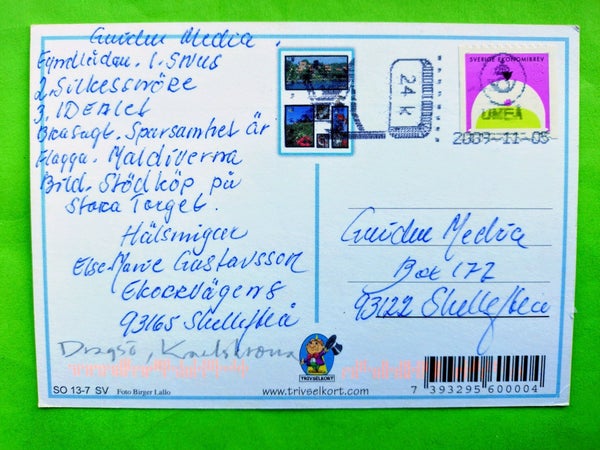 Guidu Media
Fyndlådan. 1. SNUS
2. Silkessnöre
3. IDEALET
Bra sagt. Sparsamhet är
Flagga. Maldiverna
Bild. Stödköp på
Stora Torget.
Hälsningar
Else-Marie Gustavsson
Ekorrvägen 8
93165 Skellefteå
Dragsö, Karlskrona
SO 13-7 SV Foto Birger Lallo
TRIVSELKORT
www.trivselkort.com
24 k
SVERIGE EKONOMIBREV
UMEÅ
2009-11-05
Guidu Media
Box 172
93122 Skellefteå
7 393295 600004